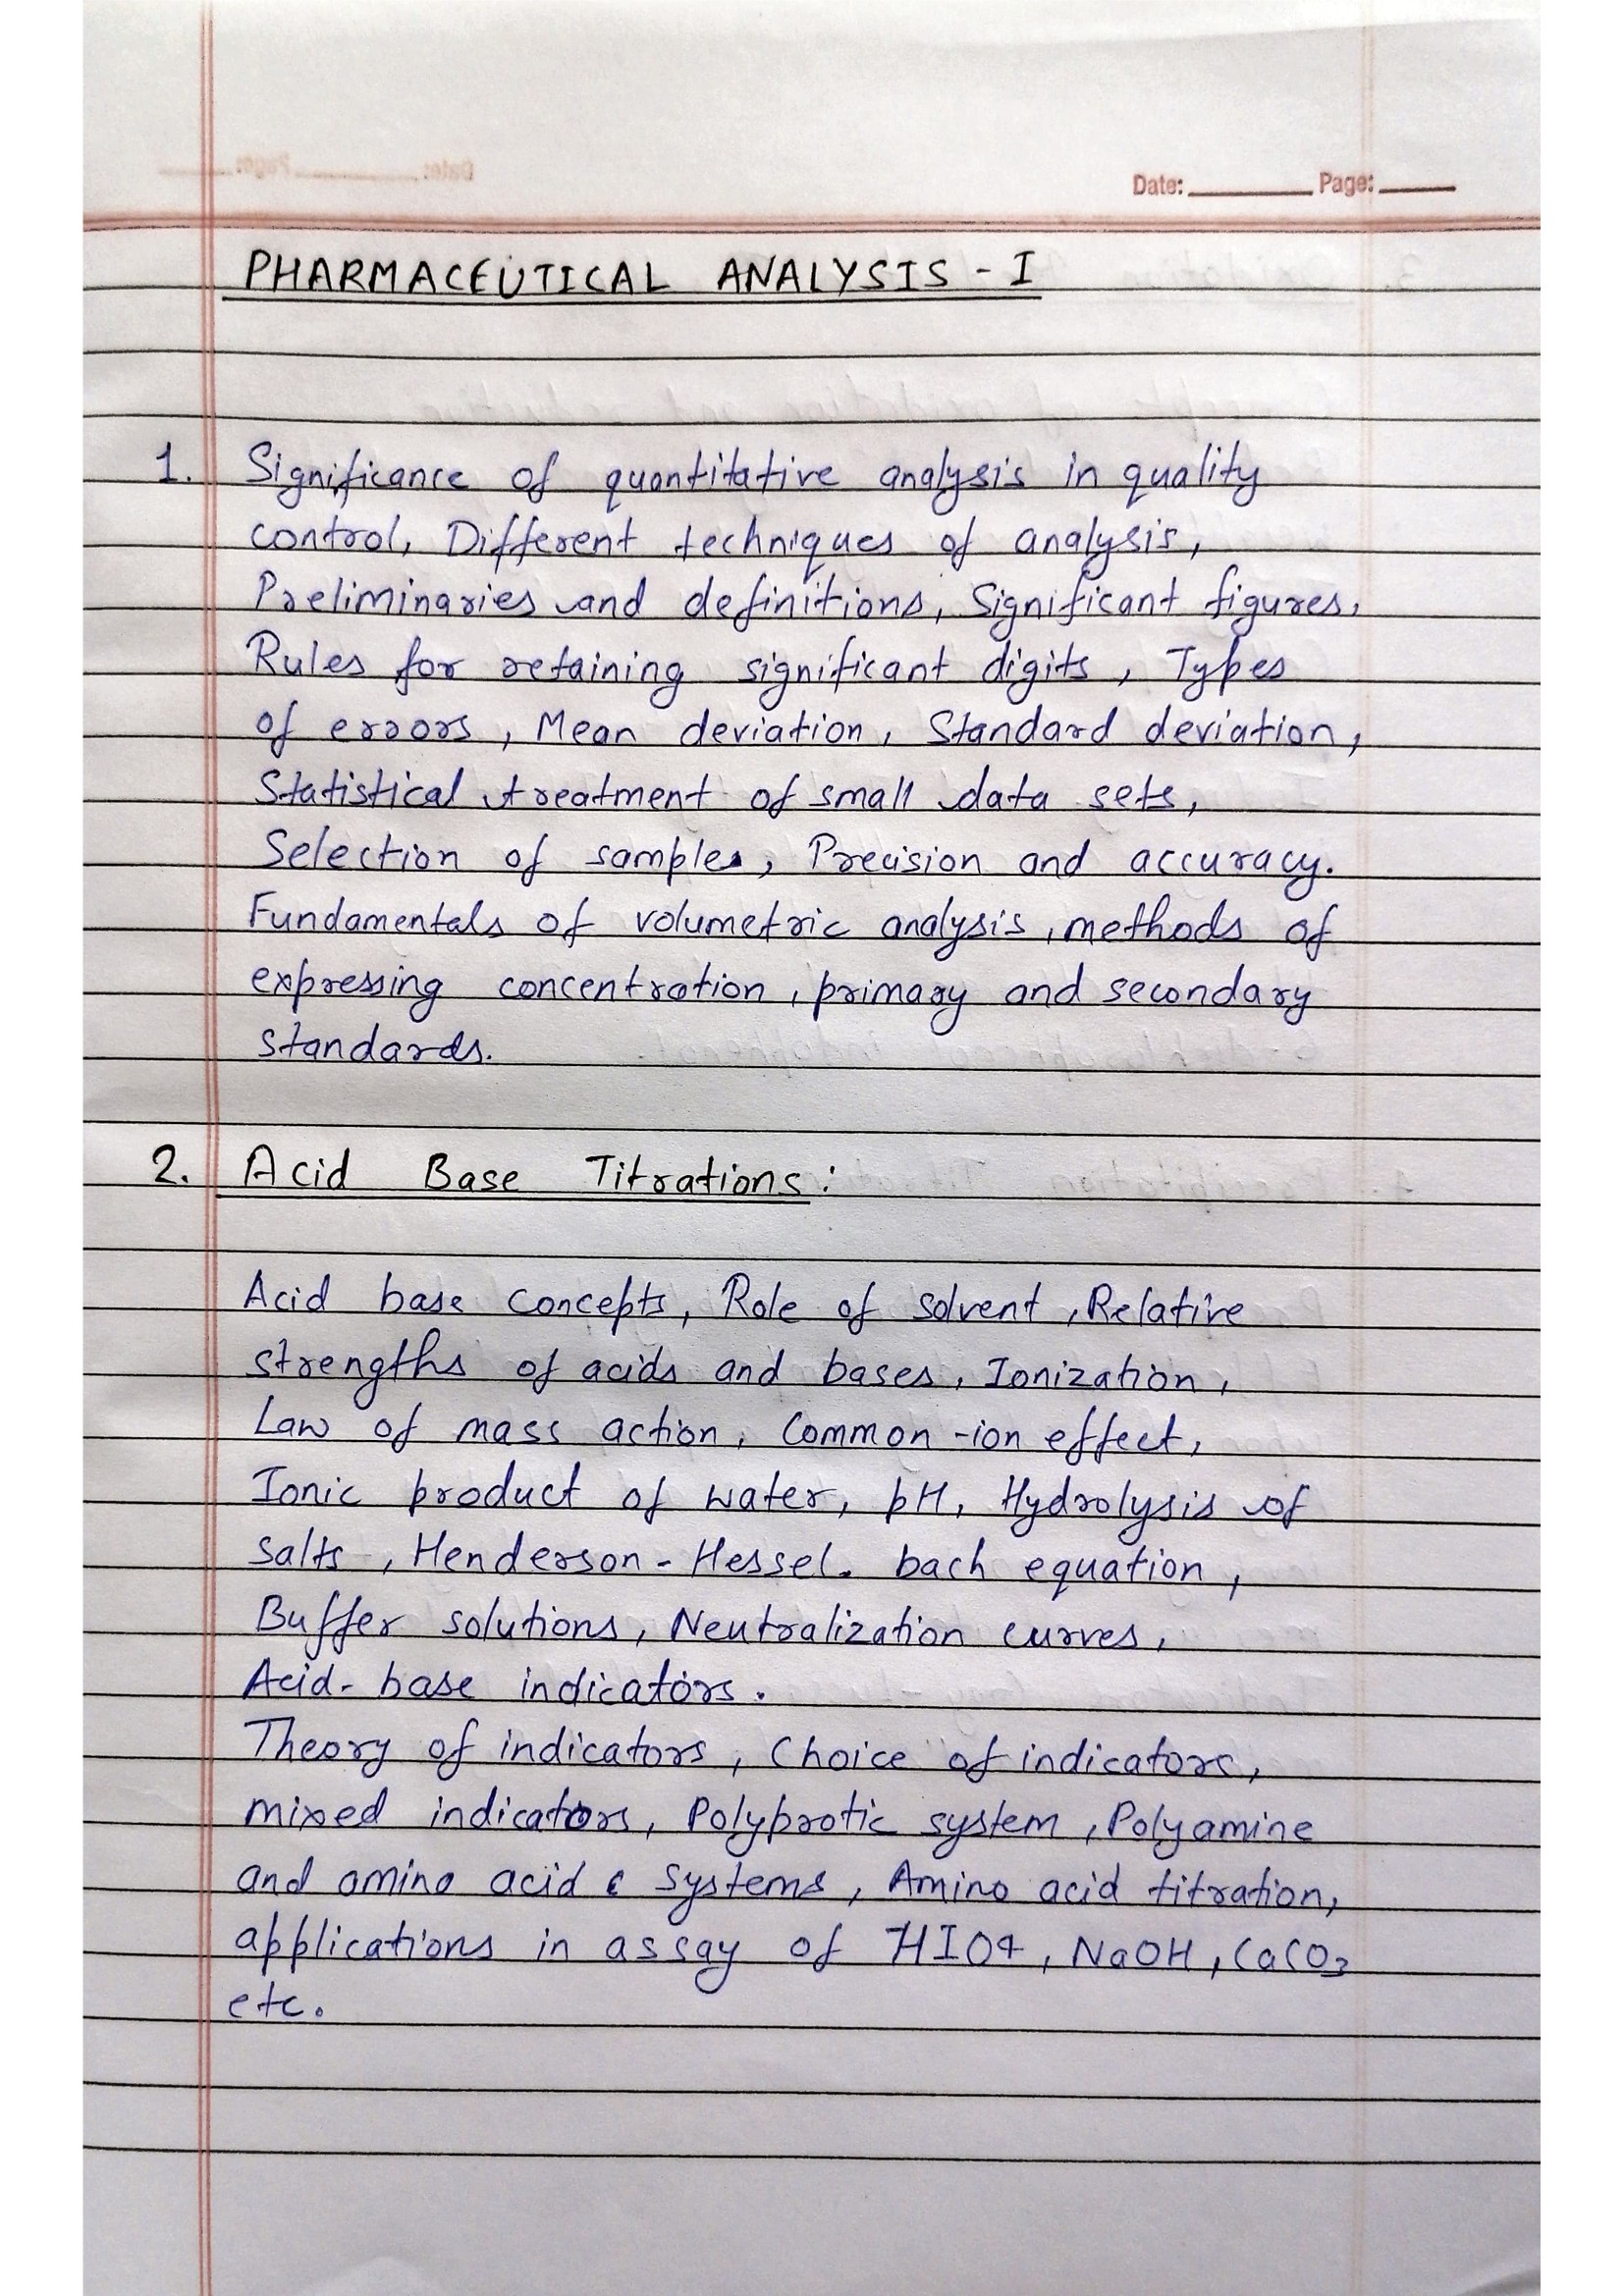 Date: ________ Page: ____
PHARMACEUTICAL ANALYSIS - I
1. Significance of quantitative analysis in quality
control, Different techniques of analysis,
Preliminaries and definitions, Significant figures,
Rules for retaining significant digits, Types
of errors, Mean deviation, Standard deviation,
Statistical treatment of small data sets,
Selection of samples, Precision and accuracy.
Fundamentals of volumetric analysis, methods of
expressing concentration, primary and secondary
standards.
2. Acid Base Titrations:
Acid base concepts, Role of solvent, Relative
strengths of acids and bases, Ionization,
Law of mass action, Common-ion effect,
Ionic product of water, pH, Hydrolysis of
salts, Henderson-Hessel. bach equation,
Buffer solutions, Neutralization curves,
Acid-base indicators.
Theory of indicators, Choice of indicators,
mixed indicators, Polyprotic system, Polyamine
and amino acid systems, Amino acid titration,
applications in assay of HIO4, NaOH, CaCO3
etc.